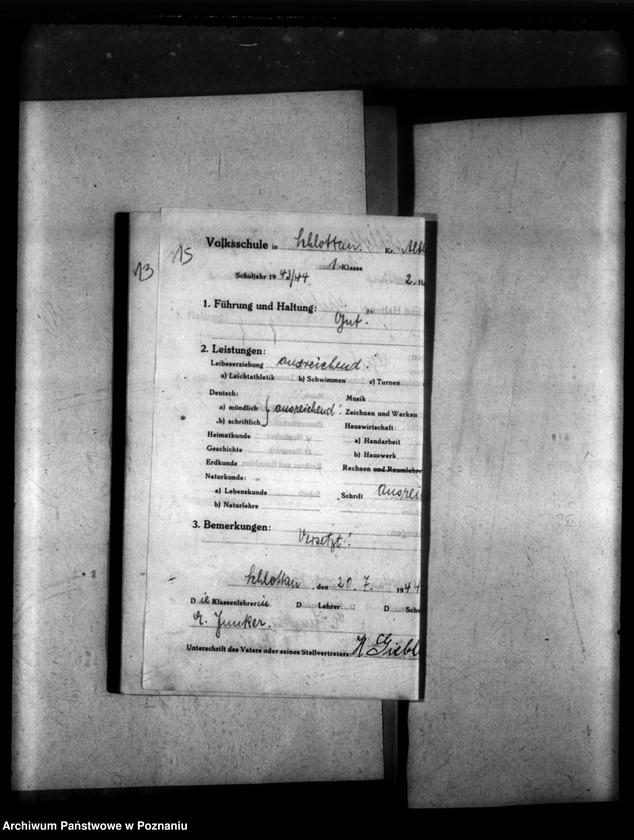 13
15
Volksschule in Schlottau. Kr.
1. Klasse
Schuljahr 1943/44 2.
1. Führung und Haltung:
Gut.
2. Leistungen:
Leibeserziehung ausreichend.
a) Leichtathletik b) Schwimmen c) Turnen
Deutsch: Musik
a) mündlich } ausreichend. Zeichnen und Werken
b) schriftlich Hauswirtschaft:
Heimatkunde a) Handarbeit
Geschichte b) Hauswerk
Erdkunde Rechnen und Raumlehre
Naturkunde:
a) Lebenskunde Schrift
b) Naturlehre
3. Bemerkungen:
Versetzt!
Schlottau, den 20. 7. 1944
Die Klassenlehrerin D Lehrer: D
Junker.
Unterschrift des Vaters oder seines Stellvertreters:
Archiwum Państwowe w Poznaniu